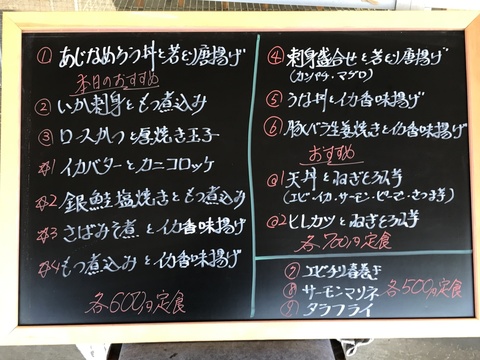 ① あじなめろう丼と若どり唐揚げ
本日のおすすめ
② いか刺身ともつ煮込み
③ ロースかつと厚焼き玉子
イカバターとカニコロッケ
銀鮭塩焼きともつ煮込み
さばみそ煮とイカ香味揚げ
もつ煮込みとイカ香味揚げ
各600円定食
④ 刺身盛合せと若どり唐揚げ
(カンパチ・マグロ)
⑤ うな丼とイカ香味揚げ
⑥ 豚バラ生姜焼きとイカ香味揚げ
おすすめ
天丼とねぎとろ
(エビ・イカ・サーモン・ピーマン・さつま芋)
ヒレカツとねぎとろ
各700円定食
⑦ エビチリ春巻き
⑧ サーモンマリネ 各500円定食
⑨ タラフライ